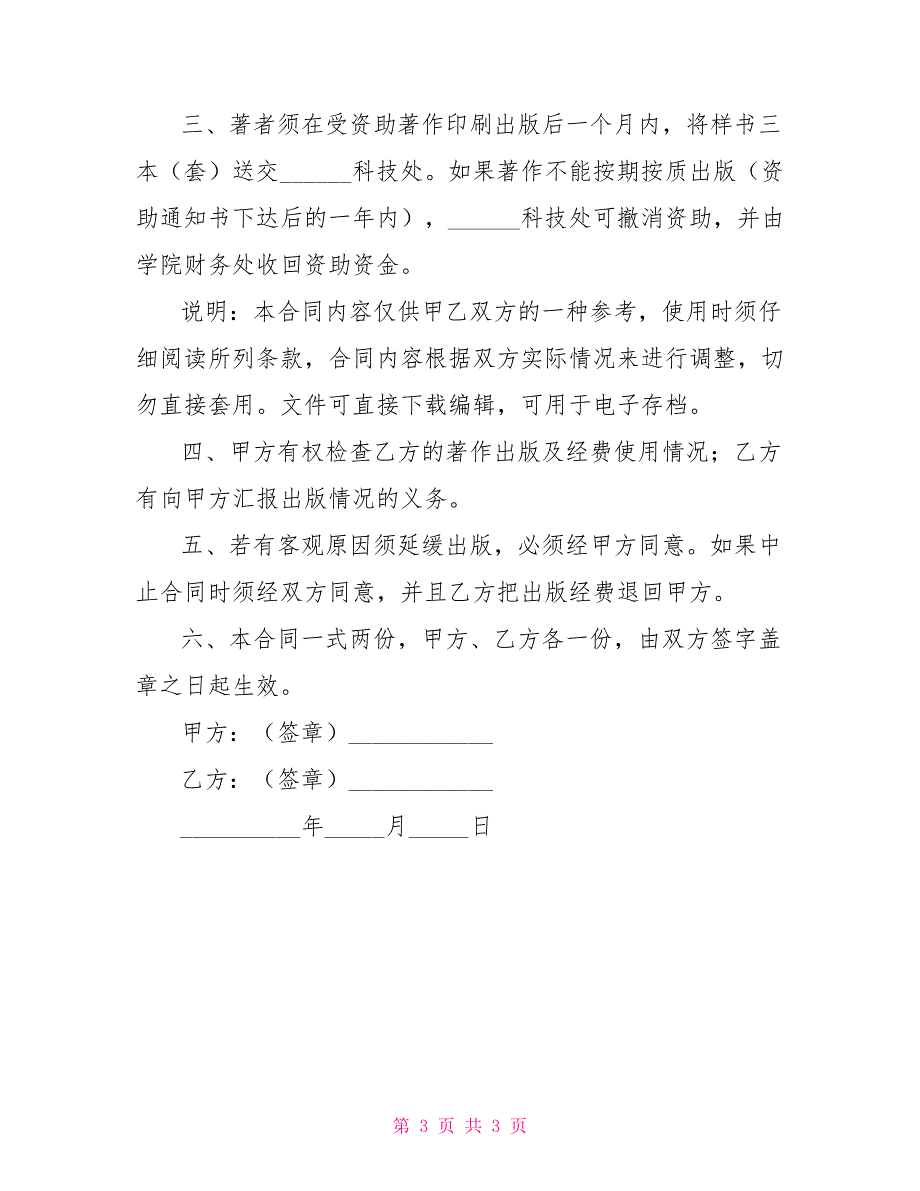 三、著者须在受资助著作印刷出版后一个月内，将样书三
本（套）送交______科技处。如果著作不能按期按质出版（资
助通知书下达后的一年内），______科技处可撤消资助，并由
学院财务处收回资助资金。
说明：本合同内容仅供甲乙双方的一种参考，使用时须仔
细阅读所列条款，合同内容根据双方实际情况来进行调整，切
勿直接套用。文件可直接下载编辑，可用于电子存档。
四、甲方有权检查乙方的著作出版及经费使用情况；乙方
有向甲方汇报出版情况的义务。
五、若有客观原因须延缓出版，必须经甲方同意。如果中
止合同时须经双方同意，并且乙方把出版经费退回甲方。
六、本合同一式两份，甲方、乙方各一份，由双方签字盖
章之日起生效。
甲方：（签章）____________
乙方：（签章）____________
__________年_____月_____日
第 3 页 共 3 页